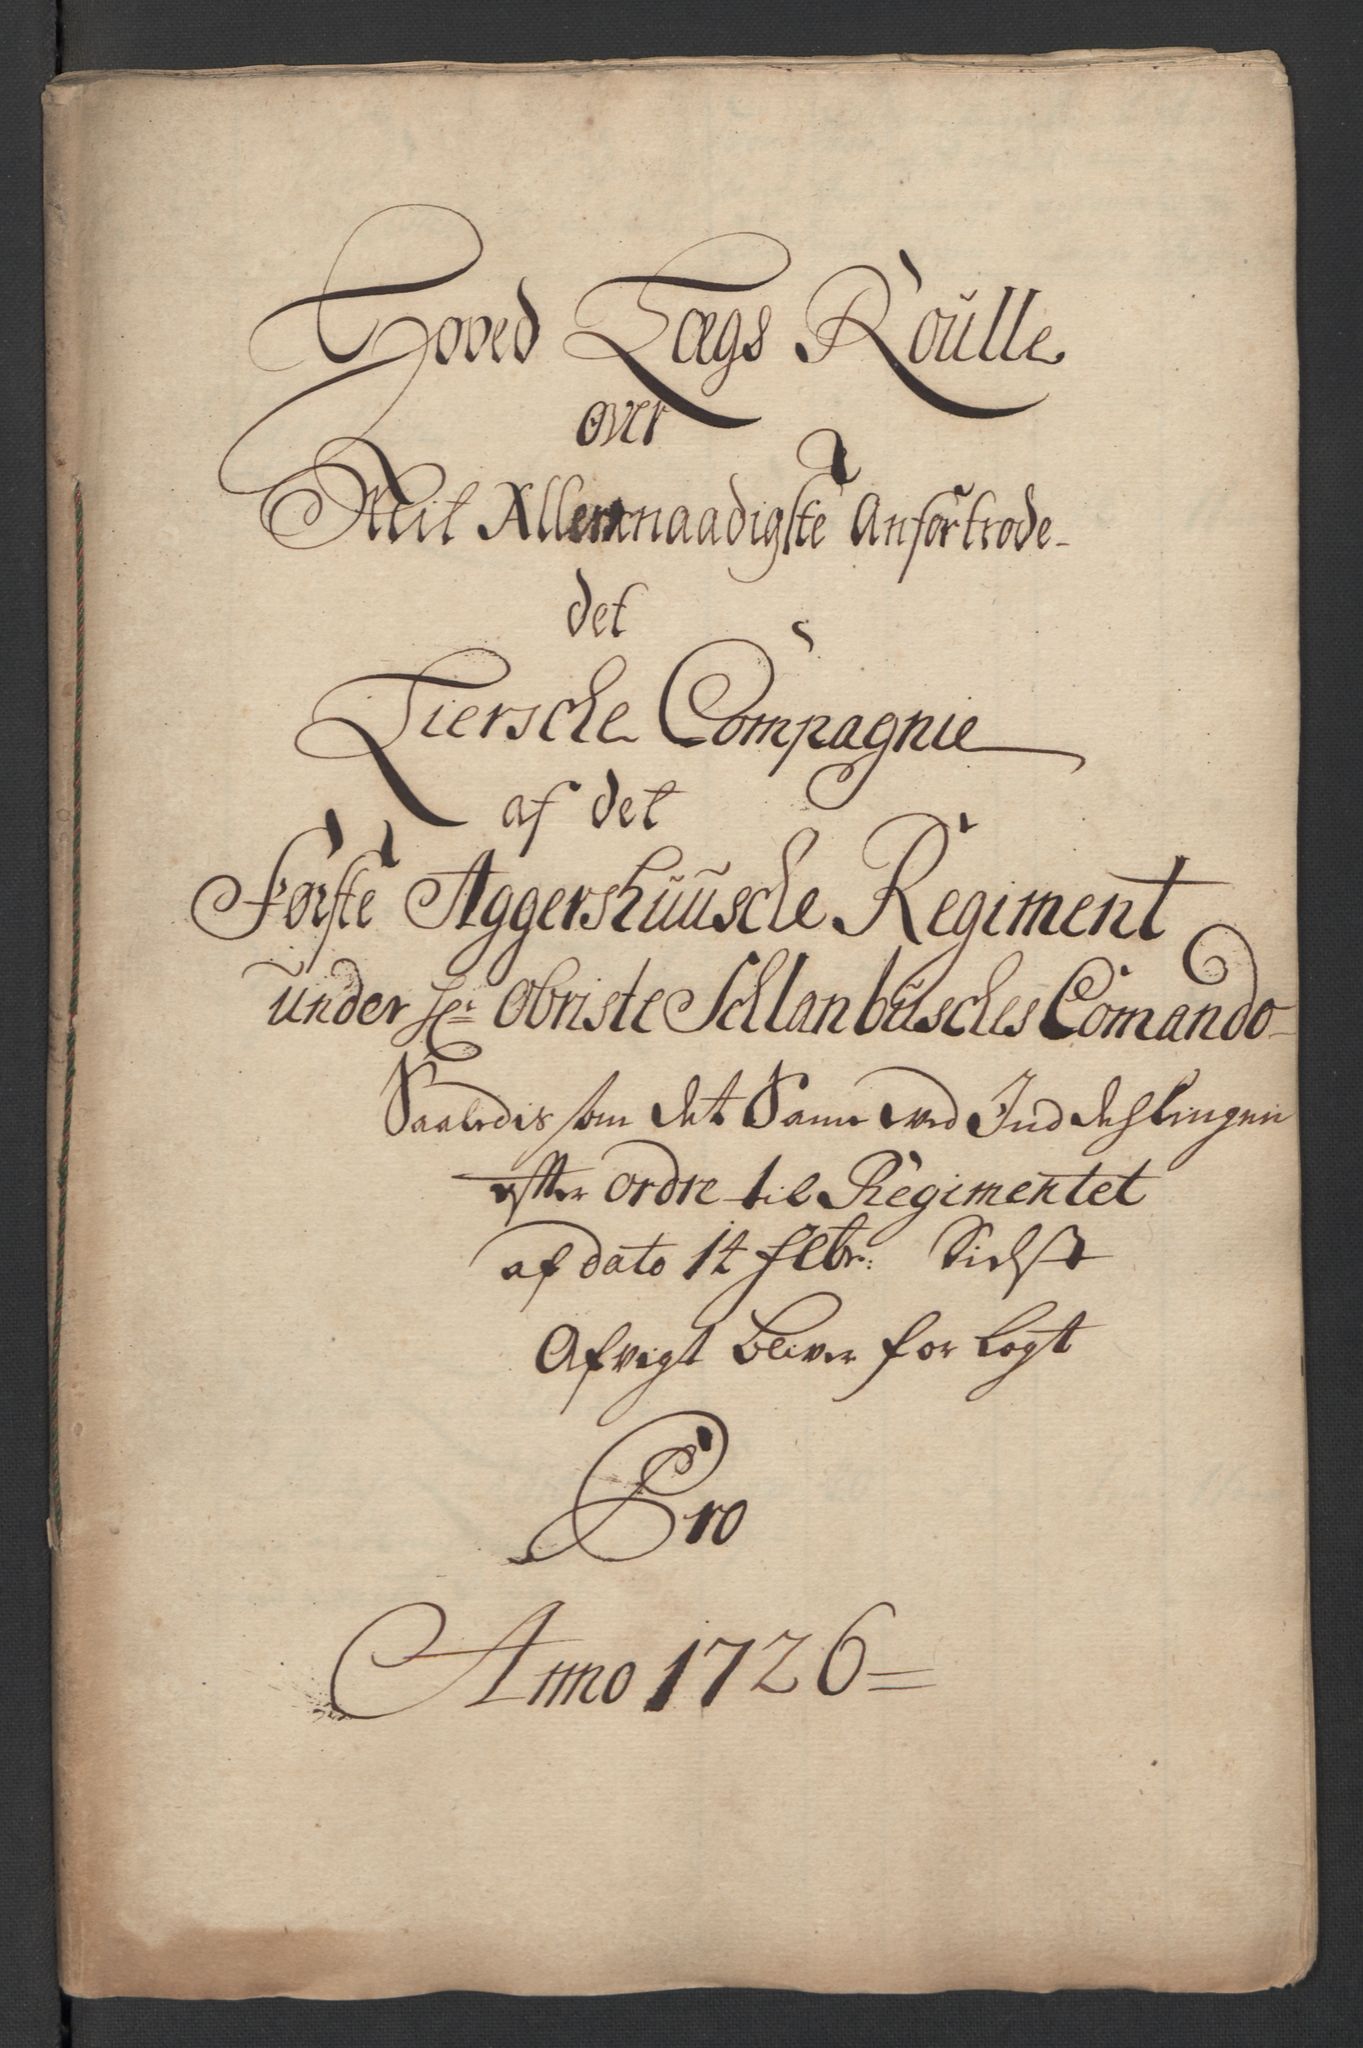 Hoved Lægs Roülle
over
Mit Allernaadigste Anfortrode
det
Liersche Compagnie
af det
Første Aggershuüsche Regiment
ünder Hr Obriste Schlanbüsches Comando
Saaledis som det Samme ved Inddehlingen
efter ordre til Regimentet
af dato 14 febr: Sidst
Afvigt bliver forlagt
Pro
Anno 1726=